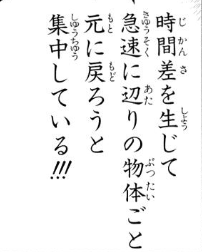 時間差を生じて
急速に辺りの物体ごと
元に戻ろうと
集中している!!!